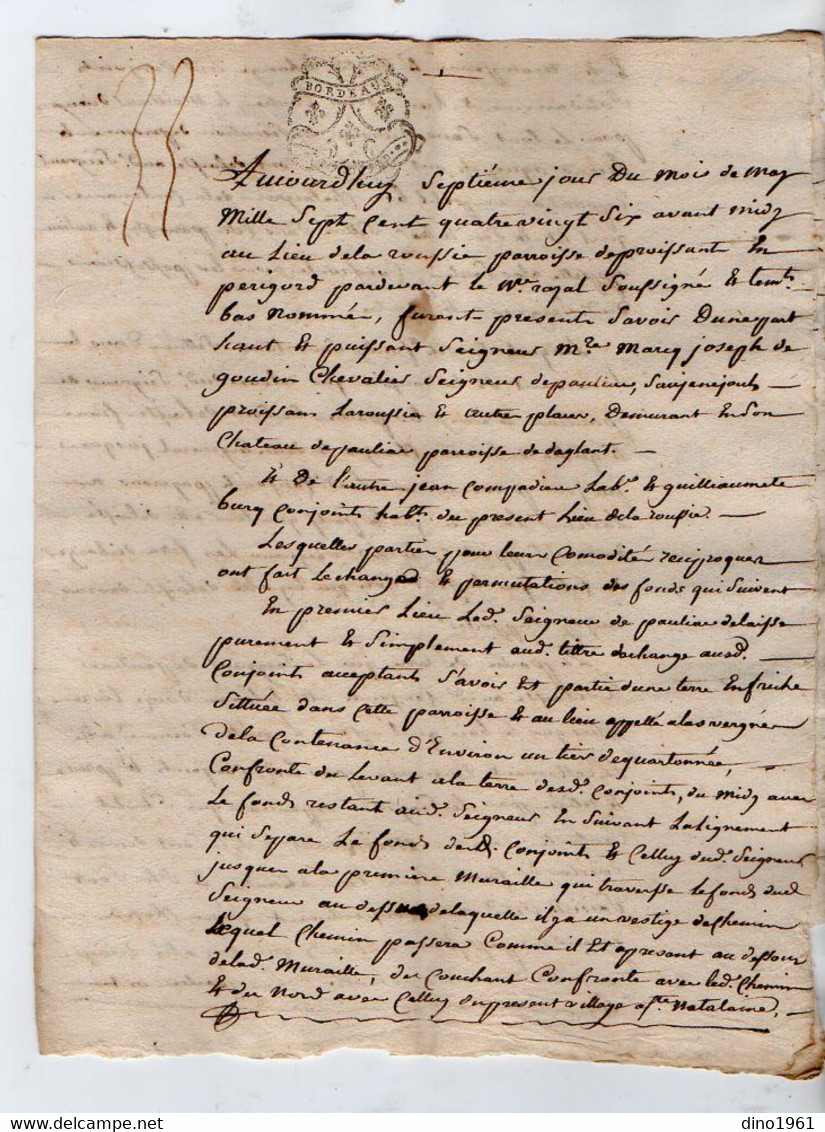 BORDEAUX
Aujourdhuy Septième jour Du Mois de May
Mille Sept Cent quatre vingt Six avant midy
au Lieu dela roussie parroisse de proissant En
perigord pardevant le Nre. royal Soussigné Et temts.
bas nommés, furent presents Savoir Dune part
haut Et puissant Seigneur Mre. Marq joseph de
goudin Chevalier Seigneur de pauliac,
proissans Laroussie Et autres places, Demurant En Son
Chateau de pauliac parroisse de daglant. —
Et De l'autre jean Compadieu Labr. Et guilliaumete
burg Conjoints habts. du present Lieu dela roussie. —
Lesquelles parties pour leurs Comodités reciproques
ont fait lechange Et permutations des fonds qui Suivent
En premier Lieu Led. Seigneur de pauliac delaisse
purement Et Simplement aud. tittre dechange ausd. —
Conjoints acceptants Savoir Est partie dune terre En friche
Sittuée dans Cette parroisse Et au lieu appellé a las vergnes
dela Contenance d'Environ un tiers de quartonnée, —
Confronte du Levant a la terre desd. Conjoints, du Midy avec
Le fonds restant aud. Seigneur En Suivant Lalignement
qui Separe Le fonds desd. Conjoints Et Celluy dud. Seigneur
jusques a la premiere Muraille qui traverse le fonds dud
Seigneur au dessus de laquelle il y a un vestige de Chemin
Lequel Chemin passera Comme il Est apresant au dessous
de lad. Muraille, du Couchant Confronte avec led. Chemin
Et du Nord avec Celluy du present village a